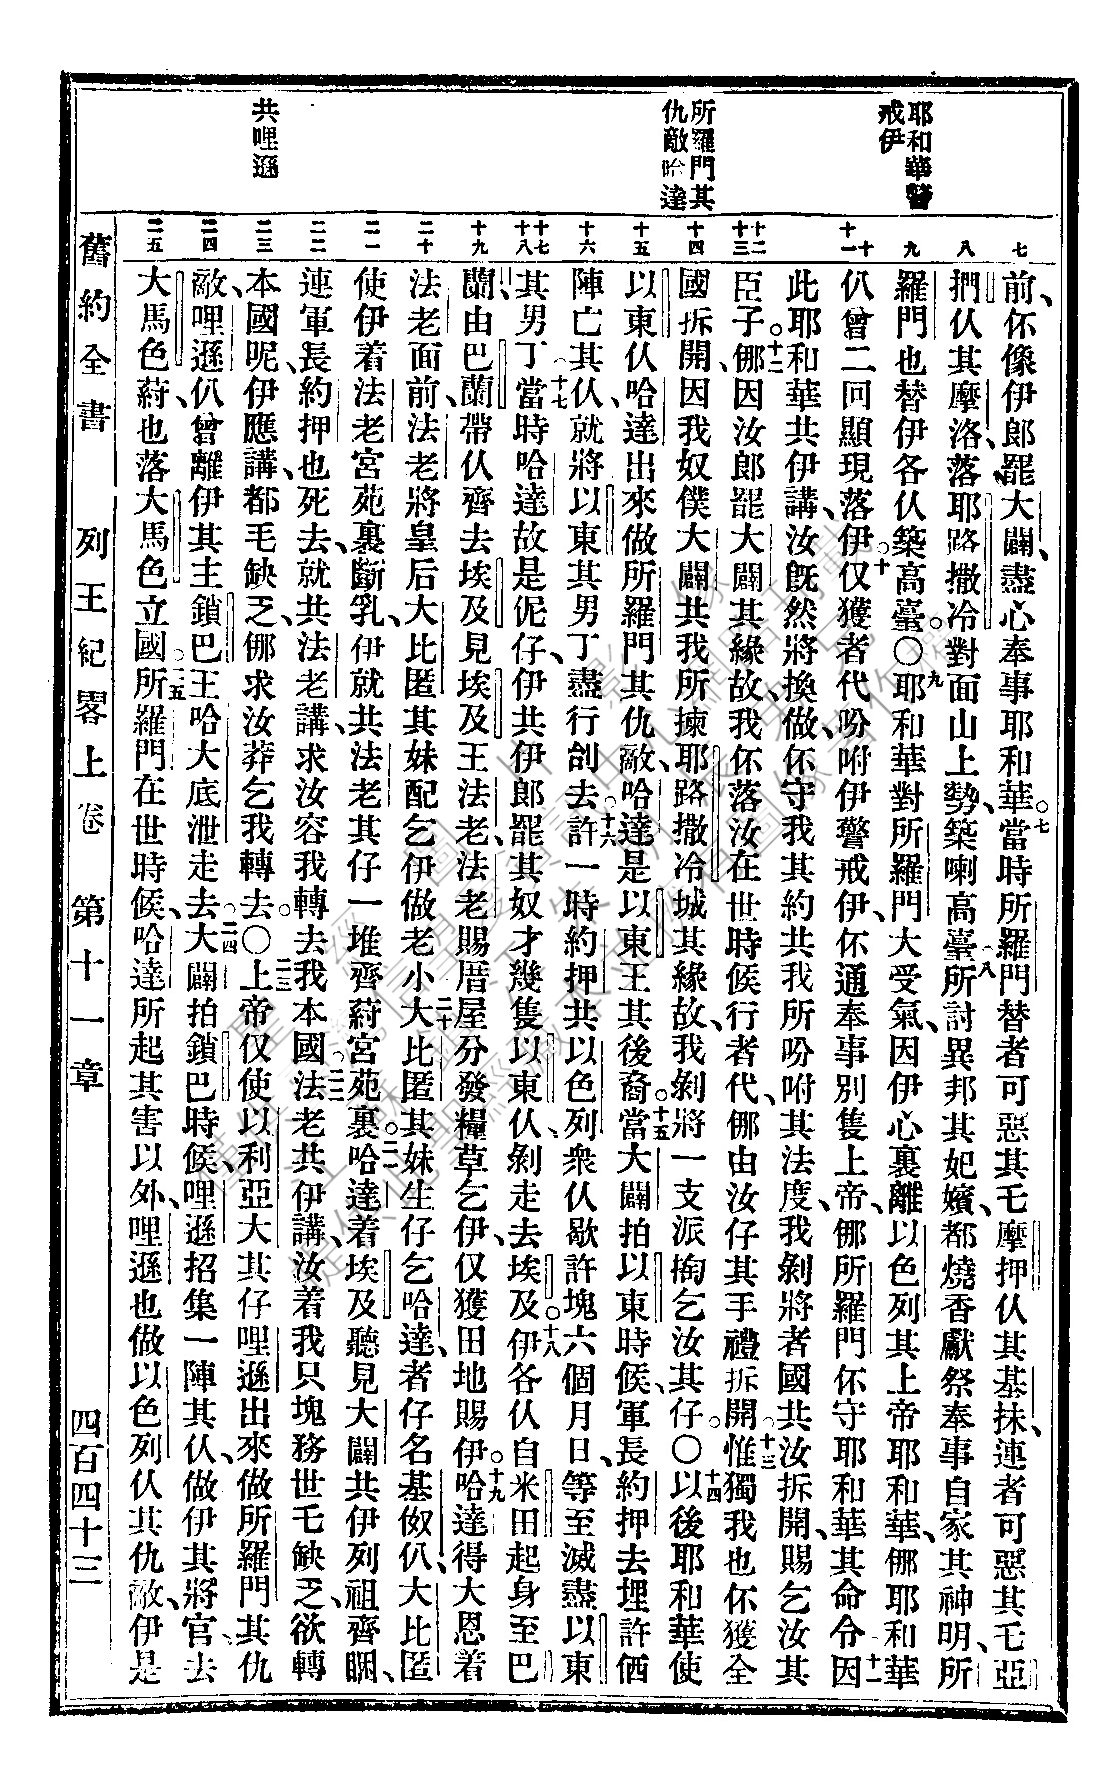 耶和華警
戒伊
所羅門其
仇敵哈達
共哩遜
七
八
九
十
十一
十二
十三
十四
十五
十六
十七
十八
十九
二十
二一
二二
二三
二四
二五
前、伓像伊郎罷大闢、盡心奉事耶和華。七當時所羅門替者可惡其乇摩押仈其基抹、連者可惡其乇亞
捫仈其摩洛、落耶路撒冷對面山上勢、築喇高臺。八所討異邦其妃嬪、都燒香獻祭奉事自家其神明、所
羅門也替伊各仈築高臺。〇九耶和華對所羅門大受氣、因伊心裏離以色列其上帝耶和華、㑚耶和華
仈曾二回顯現落伊。十仅獲者代吩咐伊警戒伊、伓通奉事別隻上帝、㑚所羅門伓守耶和華其命令。十一因
此耶和華共伊講、汝旣然將換做、伓守我其約共我所吩咐其法度、我剝將者國共汝拆開、賜乞汝其
臣子。十二㑚因汝郎罷大闢其緣故、我伓落汝在世時候行者代、㑚由汝仔其手禮拆開。十三惟獨我也伓獲全
國拆開、因我奴僕大闢、共我所揀耶路撒冷城其緣故、我剝將一支派掏乞汝其仔。〇十四以後耶和華使
以東仈哈達出來做所羅門其仇敵、哈達是以東王其後裔。十五當大闢拍以東時候、軍長約押去埋許𠳿
陣亡其仈、就將以東其男丁、盡行刣去。十六許一時約押共以色列衆仈歇許塊六個月日、等至滅盡以東
其男丁。十七當時哈達故是伲仔、伊共伊郎罷其奴才幾隻以東仈、剝走去埃及。十八伊各仈自米田起身至巴
蘭、由巴蘭帶仈齊去埃及、見埃及王法老、法老賜厝屋分發糧草乞伊、仅獲田地賜伊。十九哈達得大恩着
法老面前、法老將皇后大比匿其妹配乞伊做老小。二十大比匿其妹生仔乞哈達、者仔名基伮仈、大比匿
使伊着法老宮苑裏斷乳、伊就共法老其仔一堆齊蒔宮苑裏。二一哈達着埃及聽見大闢共伊列祖齊睏、
連軍長約押也死去、就共法老講、求汝容我轉去我本國。二二法老共伊講、汝着我只塊務世乇缺乏、欲轉
本國呢、伊應講、都毛缺乏、㑚求汝莽乞我轉去。〇二三上帝仅使以利亞大其仔哩遜出來做所羅門其仇
敵、哩遜仈曾離伊其主鎖巴王哈大底泄走去。二四大闢拍鎖巴時候、哩遜招集一陣其仈、做伊其將官、去
大馬色蒔、也落大馬色立國。二五所羅門在世時候、哈達所起其害以外、哩遜也做以色列仈其仇敵、伊是
舊約全書 列王紀畧上卷 第十一章 四百四十三